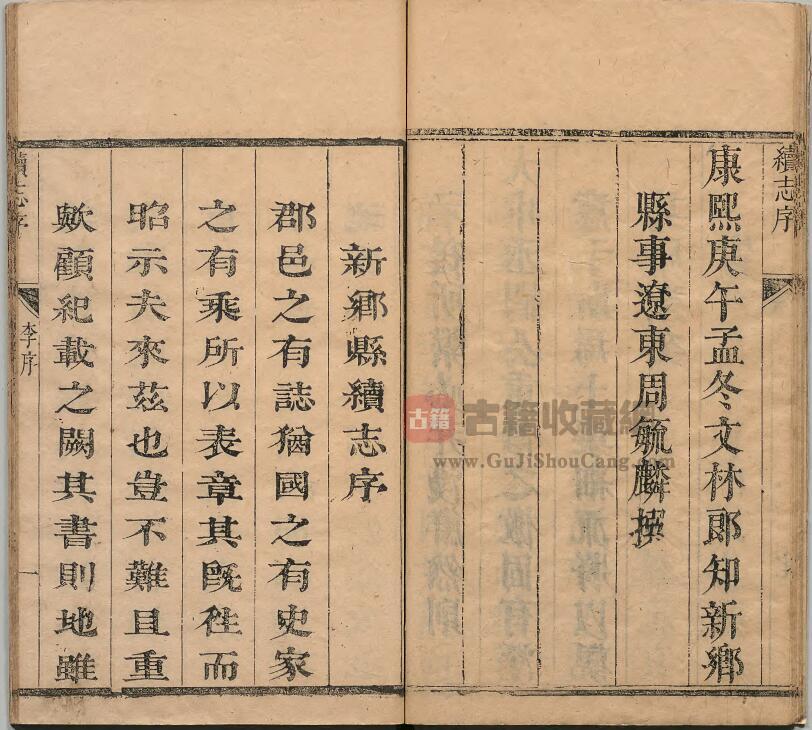 續志序
康熙庚午孟冬文林郎知新鄉
縣事遼東周毓麟撰
新鄉縣續志序
郡邑之有誌猶國之有史家
之有乘所以表章其旣徃而
昭示夫來茲也豈不難且重
歟顧紀載之闕其書則地雖
續志序
李序
一
古籍 古籍收藏網
www.GuJiShouCang.com